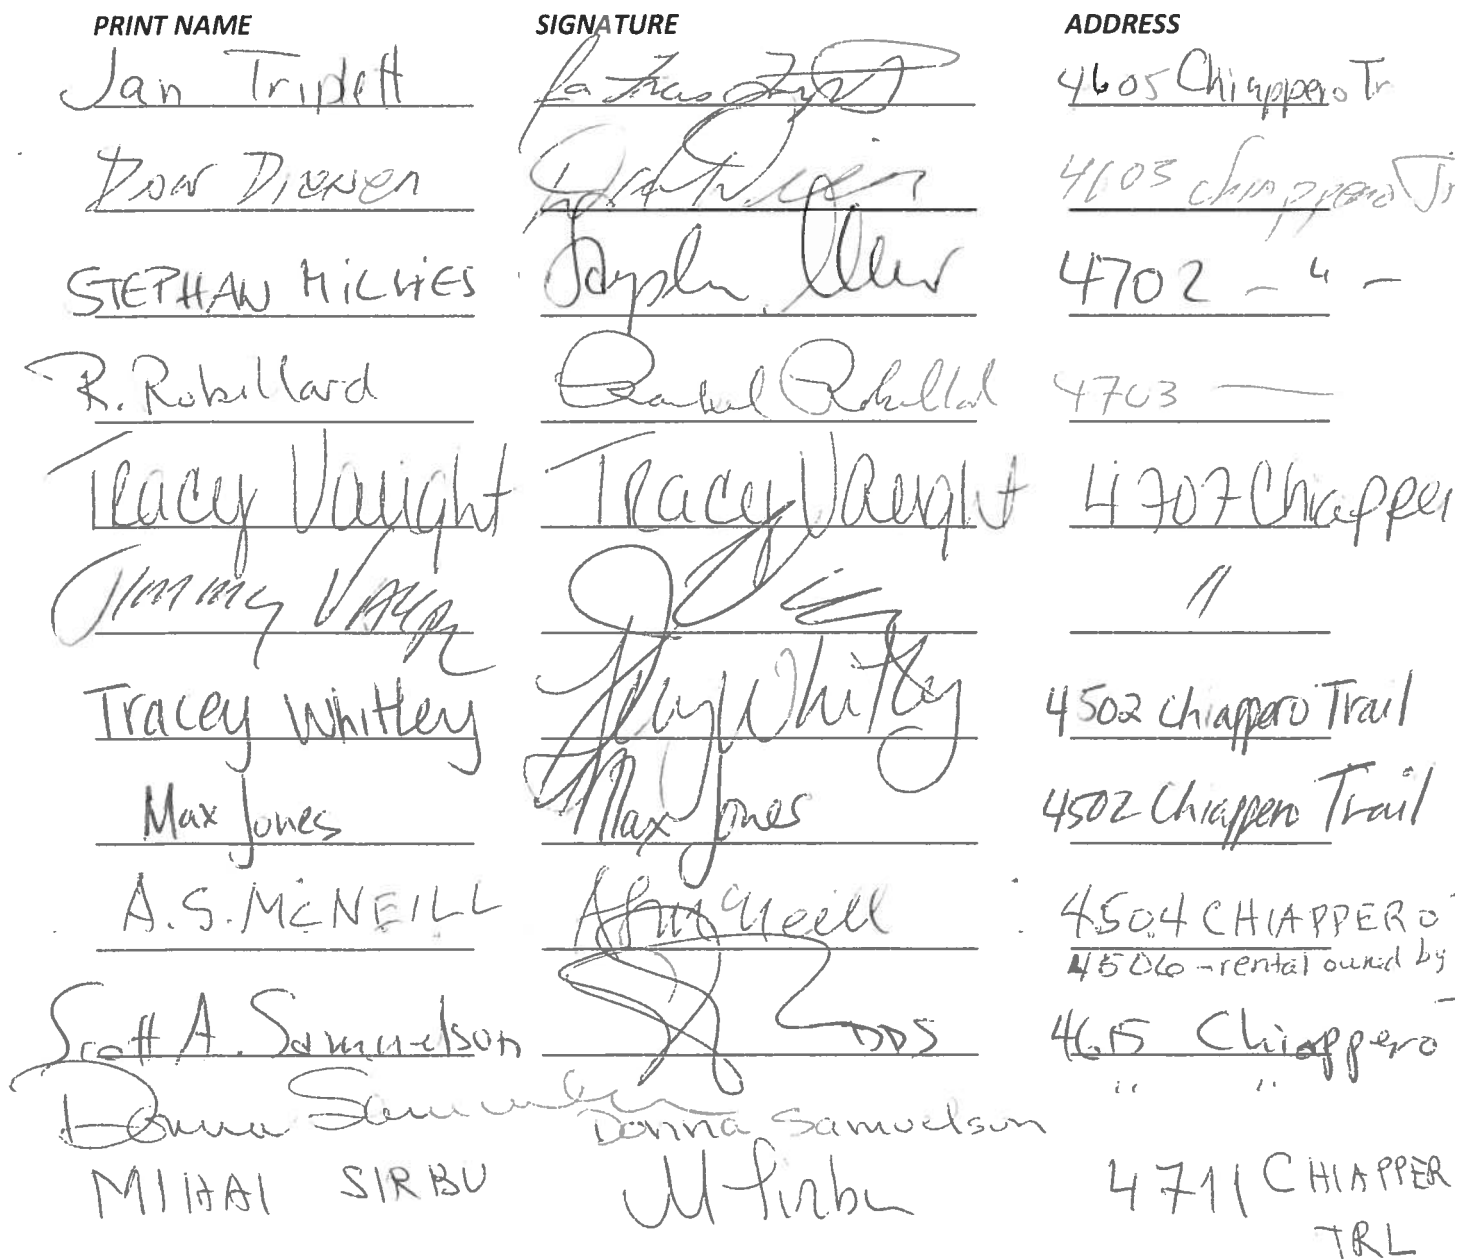 PRINT NAME SIGNATURE ADDRESS
Jan Triplett 4605 Chiappero Tr
Don 4603 Chiappero Tr
STEPHAN MILVIES 4702 - " -
R. Robillard Robillard 4703 —
Tracy Vaught Tracy Vaught 4707 Chiapper
Jimmy "
Tracey Whitley Tracey Whitley 4502 Chiappero Trail
Max Jones Max Jones 4502 Chiappero Trail
A.S. McNEILL McNeill 4504 CHIAPPERO
4506 - rental owned by
Scott A. Samuelson DDS 4615 Chiappero
Donna Samuelson Donna Samuelson " "
MIHAI SIRBU M Sirbu 4711 CHIAPPER
TRL